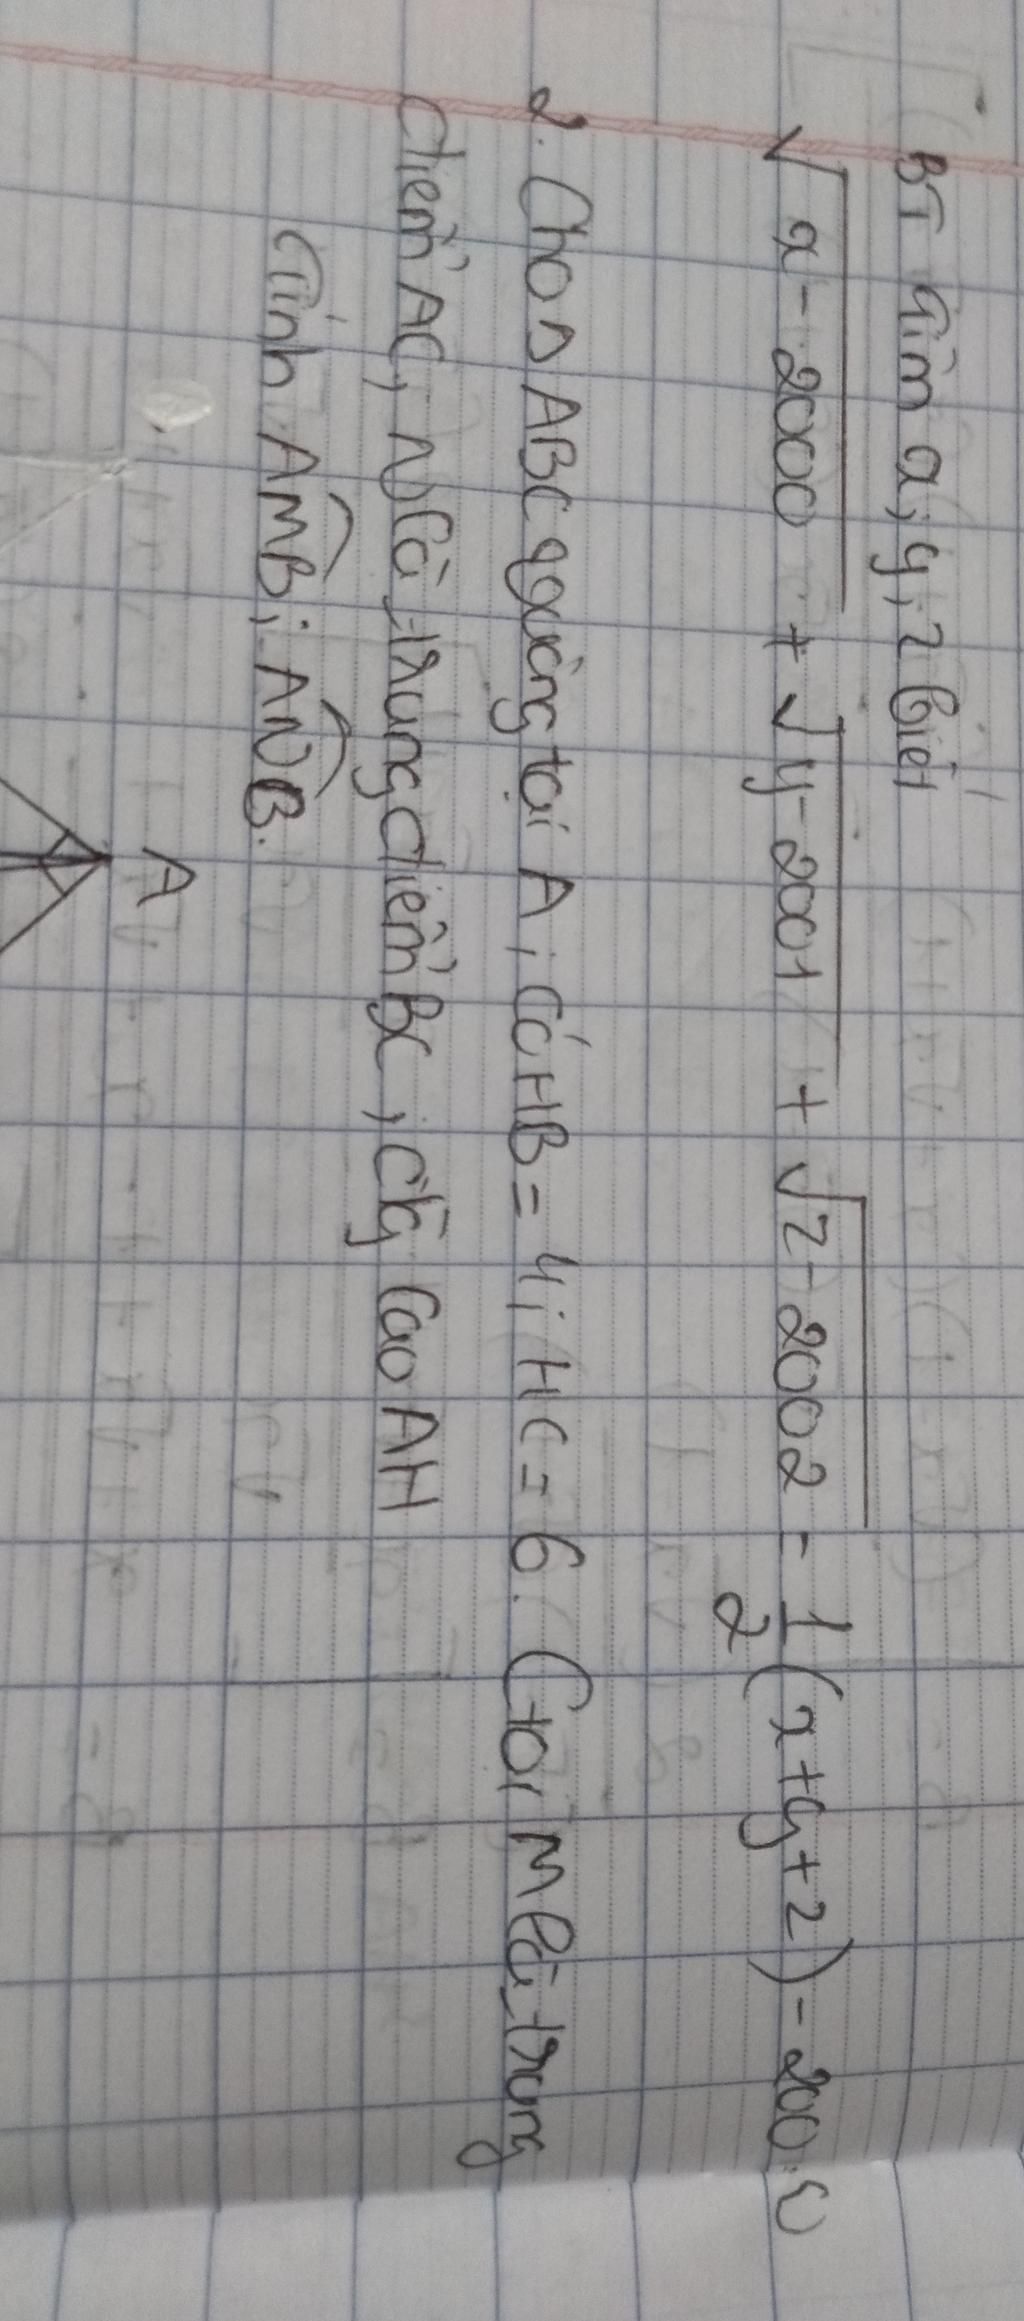 BT Tìm x, y, z biết
√x - 2000 + √y - 2001 + √z - 2002 = 1/2 (x+y+z) - 3000
2. Cho △ ABC vuông tại A, có HB = 4; HC = 6. Gọi M là trung
điểm AC, N là trung điểm BC, đg cao AH
Tính AMB; ANB.
A